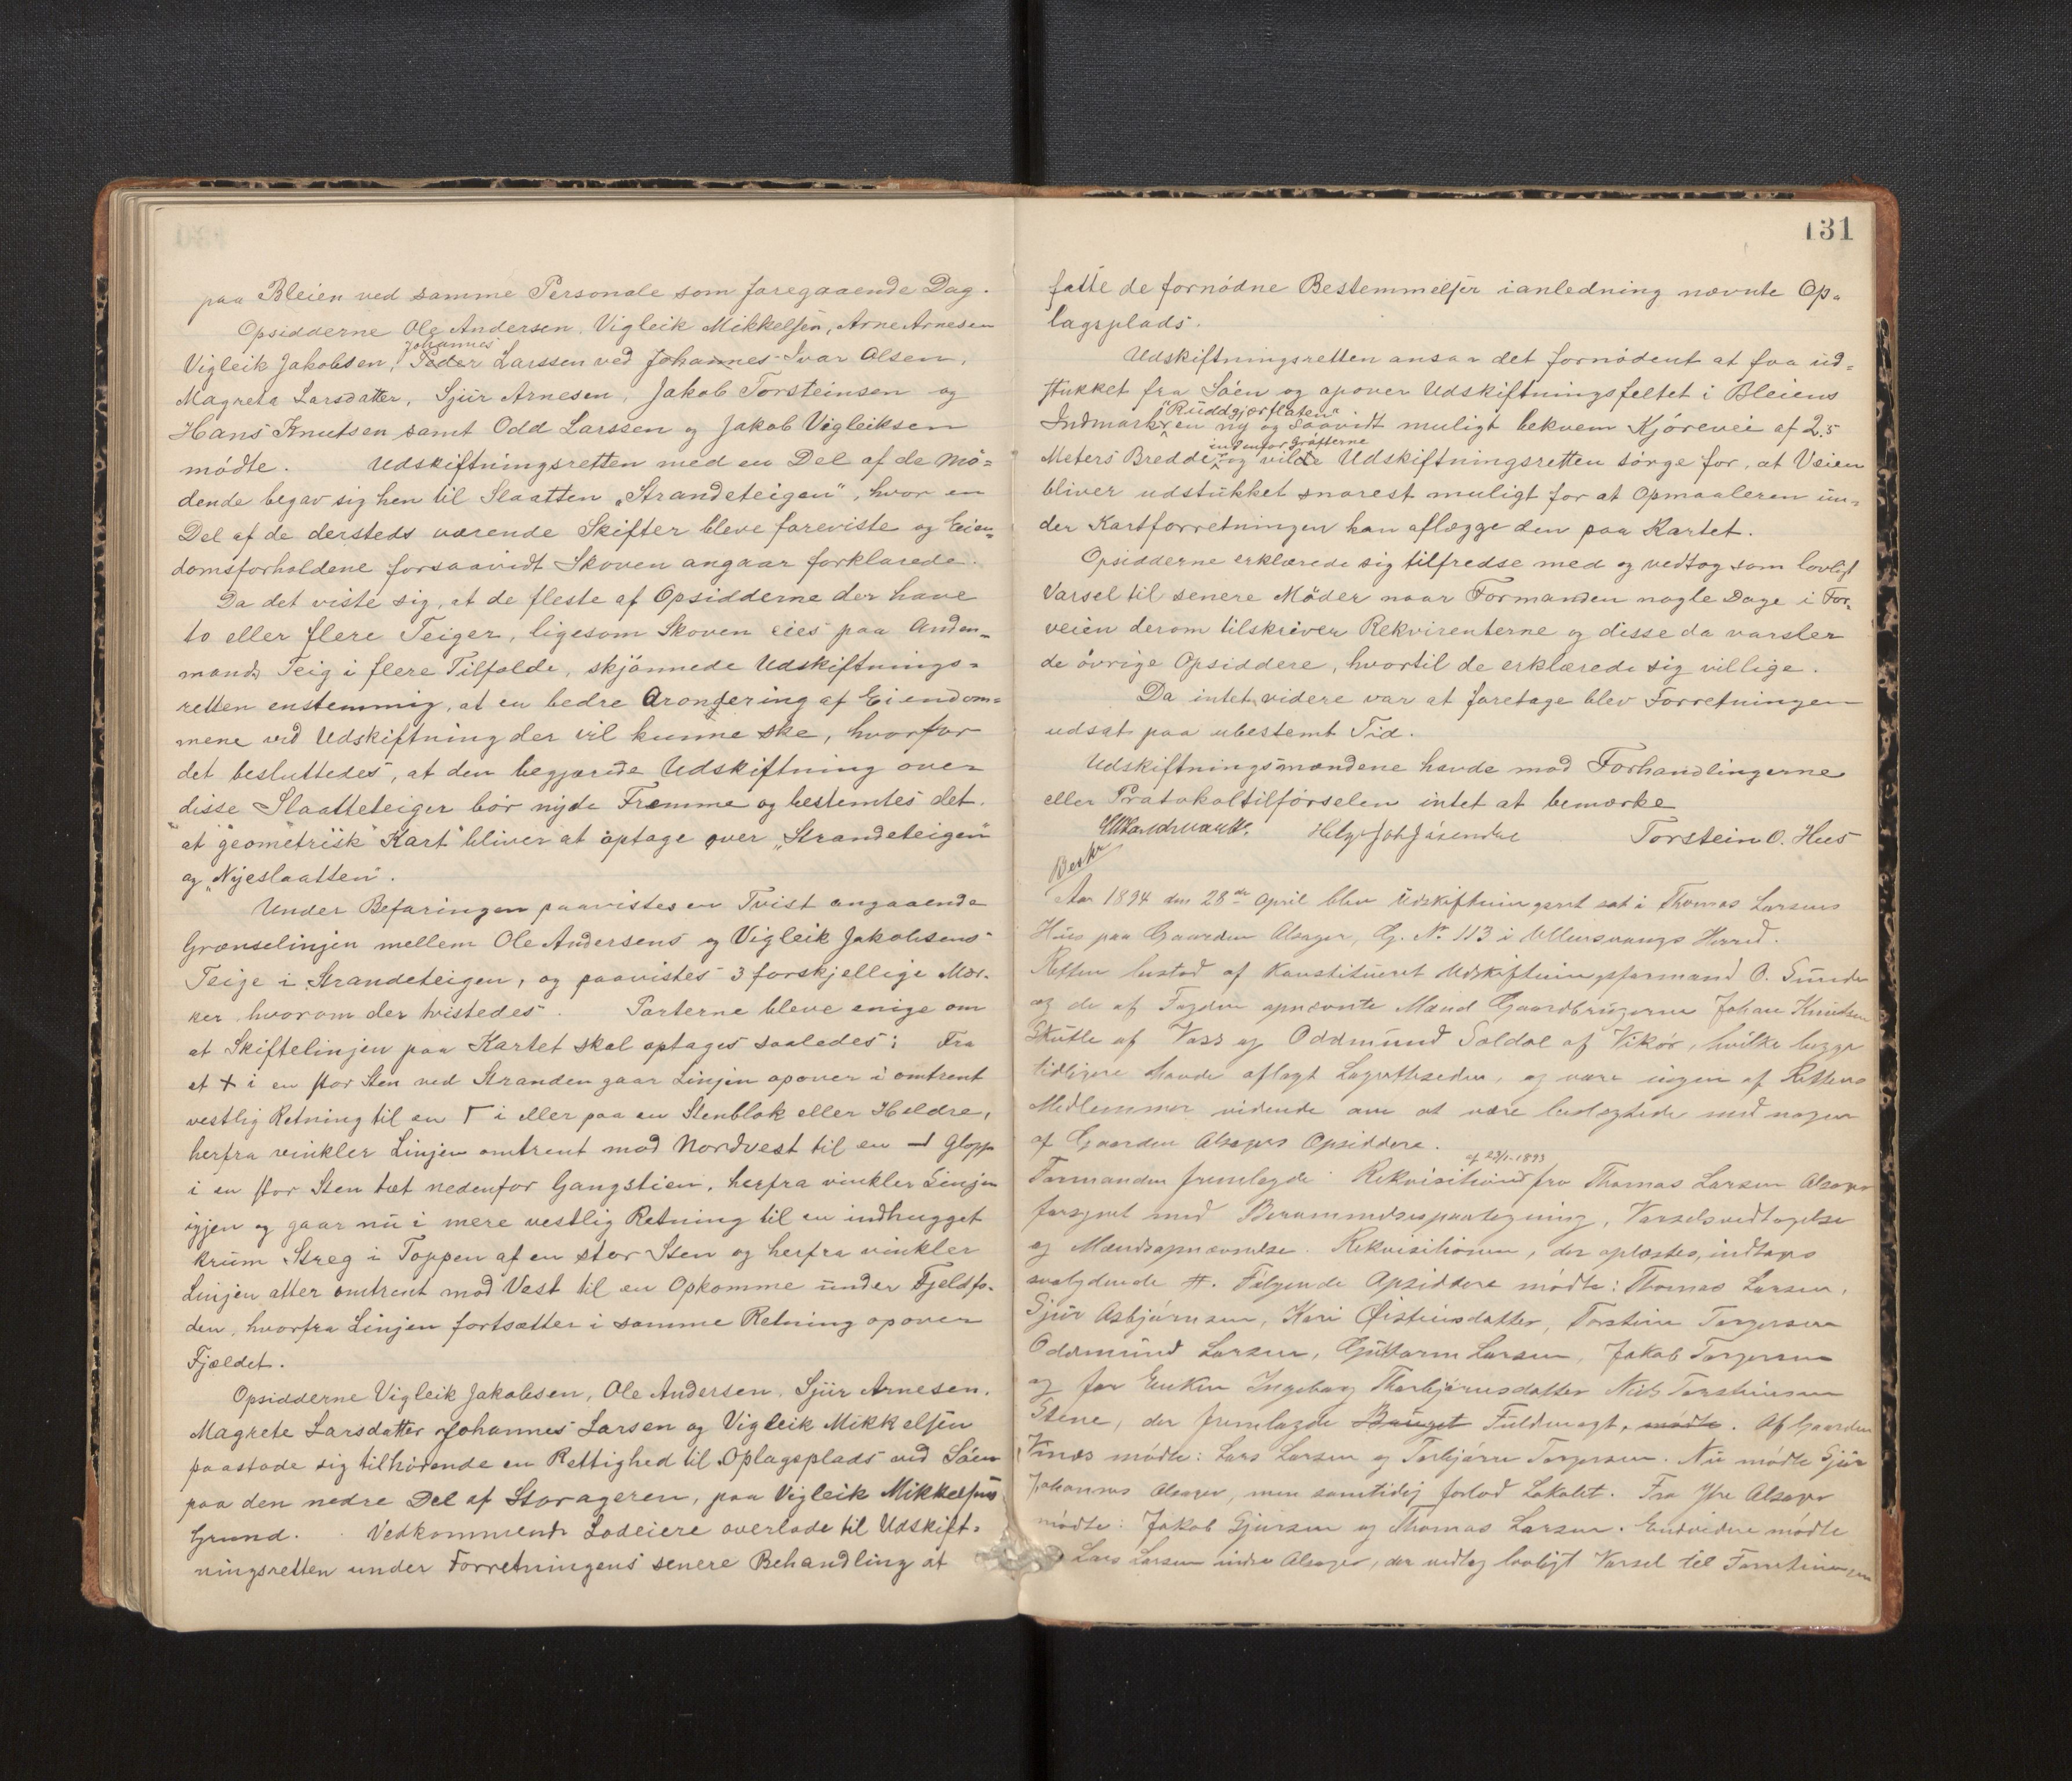 paa Bleien ved samme Personale som foregaaende Dag.
Opsidderne Ole Andersen, Vigleik Mikkelsen, Arne Arnesen
Johannes
Vigleik Jakobsen, Peder Larssen ved Johannes Ivar Olsen,
Magreta Larsdatter, Sjur Arnesen, Jakob Torsteinsen og
Hans Knutsen samt Odd Larssen og Jakob Vigleiksen
mödte. Udskiftningsretten med en Del af de Mö=
dende begav sig hen til Slaatten „Strandeteigen", hvor en
Del af de dersteds værende Skifter bleve foreviste og Eien=
domsforholdene forsaavidt Skoven angaar forklarede.
Da det viste sig, at de fleste af Opsidderne der have
to eller flere Teiger, ligesom Skoven eies paa Anden=
mands Teig i flere Tilfælde, skjönnede Udskiftnings=
retten enstemmig, at en bedre Arondering af Eiendom=
mene ved Udskiftning der vil kunne ske, hvorfor
det besluttedes, at den begjærede Udskiftning over
disse Slaatteteiger bör nyde Fremme og bestemtes det
at geometrisk Kart bliver at optage over „Strandeteigen"
og „Nyeslaatten".
Under Befaringen paavistes en Tvist angaaende
Grænselinjen mellem Ole Andersens og Vigleik Jakobsens
Teige i Strandeteigen, og paavistes 3 forskjellige Mær=
ker hvorom der tvistedes. Parterne bleve enige om
at Skiftelinjen paa Kartet skal optages saaledes: Fra
et + i en stor Sten ved Stranden gaar Linjen opover i omtrent
vestlig Retning til en Γ i eller paa en Stenblok eller Heldre,
herfra vinkler Linjen omtrent mod Nordvest til en ⊣ Glopp
i en stor Sten tæt nedenfor Gangstien, herfra vinkler Linjen
igjen og gaar nu i mere vestlig Retning til en indhugget
krum Streg i Toppen af en stor Sten og herfra vinkler
Linjen atter omtrent mod Vest til en Opkomme under Fjeldfo=
den, hvorfra Linjen fortsætter i samme Retning opover
Fjældet.
Opsidderne Vigleik Jakobsen, Ole Andersen, Sjur Arnesen,
Magrete Larsdatter Johannes Larsen og Vigleik Mikkelsen
paastode sig tilhörende en Rettighed til Oplagsplads ved Söen
paa den nedre Del af Storageren, paa Vigleik Mikkelsens
Grund. Vedkommende Lodeiere overlode til Udskift=
ningsretten under Forretningens senere Behandling at
131
fatte de fornödne Bestemmelser ianledning nævnte Op=
lagsplads.
Udskiftningsretten ansaa det fornödent at faa ud=
stukket fra Söen og opover Udskiftningsfeltet i Bleiens
"Ruddgjærflaten"
Indmark en ny og saavidt muligt bekvem Kjörevei af 2.5
indenfor Gröfterne
Meters Bredde og vilde Udskiftningsretten sörge for, at Veien
bliver udstukket snarest muligt for at Opmaaleren un=
der Kartforretningen kan aflægge den paa Kartet.
Opsidderne erklærede sig tilfredse med og vedtog som lovligt
Varsel til senere Möder naar Formanden nogle Dage i For=
veien derom tilskriver Rekvirenterne og disse da varsler
de övrige Opsiddere, hvortil de erklærede sig villige.
Da intet videre var at foretage blev Forretningen
udsat paa ubestemt Tid.
Udskiftningsmændene havde mod Forhandlingerne
eller Protokoltilförselen intet at bemærke
Torstein O. Hus
Beskr
Aar 1894 den 28de April blev Udskiftningsret sat i Thomas Larsens
Hus paa Gaarden Alsager, G. No 113 i Ullensvangs Herred.
Retten bestod af konstitueret Udskiftningsformand O. Sunde
og de af Fogden opnævnte Mænd Gaardbrugerne Johan Knudsen
Skutle af Voss og Oddmund Soldal af Vikör, hvilke begge
tidligere havde aflagt Lagretteseden, og være ingen af Rettens
Medlemmer vidende om at være beslægtede med nogen
af Gaarden Alsagers Opsiddere.
af 23/1-1893
Formanden fremlagde Rekvisition fra Thomas Larsen Alsager
forsynet med Berammelsespaategning, Varselsvedtagelse
og Mændsopnævnelse. Rekvisitionen, der oplæstes, indtages
saalydende #. Fölgende Opsiddere mödte: Thomas Larsen,
Sjur Asbjörnsen, Kari Öisteinsdatter, Torstein Torgersen
Oddmund Larsen, Guttorm Larsen, Jakob Torgersen
og for Enken Ingeborg Thorbjörnsdatter Niels Torsteinsen
Stene, der fremlagde Fuldmagt, mödte. Af Gaarden
Vinæs mödte: Lars Larsen og Torbjörn Torgersen. Nu mödte Sjur
Johannes Alsager, men samtidig forlod Lokalet. Fra Ytre Alsager
mödte: Jakob Sjursen og Thomas Larsen. Endvidere mödte
Lars Larsen indre Alsager, der vedtog lovligt Varsel til Forretningen